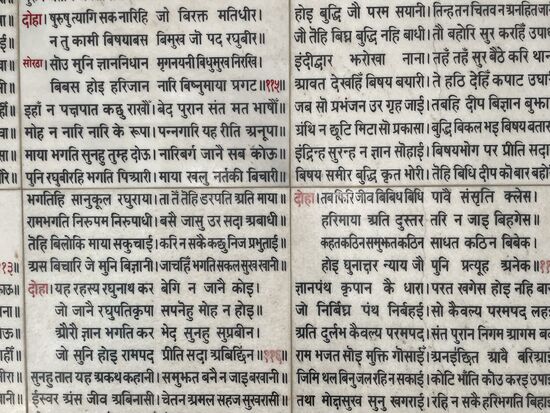 दोहा। पुरुष त्यागि सक नारिहि जो बिरक्त मतिधीर।
न तु कामी बिषयाबस बिमुख जो पद रघुबीर॥
सोरठा। सोउ मुनि ज्ञाननिधान मृगनयनी बिधुमुख निरखि।
बिबस होइ हरिजान नारि बिष्नुमाया प्रगट॥११५॥
इहाँ न पच्छपात कछु राखौं। बेद पुरान संत मत भाषौं॥
मोह न नारि नारि के रूपा। पन्नगारि यह रीति अनूपा॥
माया भगति सुनहु तुम्ह दोऊ। नारिबर्ग जानै सब कोऊ॥
पुनि रघुबीरहि भगति पिआरी। माया खलु नर्तकी बिचारी॥
भगतिहि सानुकूल रघुराया। ता तें तेहि डरपति अति माया॥
रामभगति निरुपम निरुपाधी। बसै जासु उर सदा अबाधी॥
तेहि बिलोकि माया सकुचाई। करि न सकै कछु निज प्रभुताई॥
अस बिचारि जे मुनि बिज्ञानी। जाचहिं भगति सकल सुख खानी॥
दोहा। यह रहस्य रघुनाथ कर बेगि न जानै कोइ।
जो जानै रघुपति कृपा सपनेहु मोह न होइ॥
औरौ ज्ञान भगति कर भेद सुनहु सुप्रबीन।
जो सुनि होइ रामपद प्रीति सदा अबिछिन॥११६॥
सुनहु तात यह अकथ कहानी। समुझत बनै न जाइ बखानी॥
ईस्वर अंस जीव अबिनासी। चेतन अमल सहज सुखरासी॥
होइ बुद्धि जौ परम सयानी। तिन्ह तन चितव न अनहित जा
जौ तेहि बिघ्न बुद्धि नहि बाधी। तो बहोरि सुर करहिं उपा
इंद्रीद्वार झरोखा नाना। तहँ तहँ सुर बैठे करि थान
आवत देखहिं बिषय बयारी। ते हठि देहिं कपाट उघा
जब सो प्रभंजन उर गृह जाई। तबहि दीप बिज्ञान बुझा
ग्रंथि न छूटि मिटा सो प्रकासा। बुद्धि बिकल भइ बिषय बतास
इंद्रिन्ह सुरन्ह न ज्ञान सोहाई। बिषयभोग पर प्रीति सदा
बिषय समीर बुद्धि कृत भोरी। तेहि बिधि दीप को बार बहो
दोहा। तब फिरि जीव बिबिध बिधि पावै संसृति क्लेस।
हरिमाया अति दुस्तर तरि न जाइ बिहगेस॥
कहत कठिन समुझत कठिन साधत कठिन बिबेक।
होइ घुनाच्छर न्याय जौ पुनि प्रत्यूह अनेक॥
ज्ञानपंथ कृपान कै धारा। परत खगेस होइ नहि बा
जो निर्बिघ्न पंथ निर्बहई। सो कैवल्य परमपद लह
अति दुर्लभ कैवल्य परमपद। संत पुरान निगम आगम ब
राम भजत सोइ मुक्ति गोसाईं। अनइच्छित आवै बरिआ
जिमि थल बिनु जल रहि न सकाई। कोटि भाँति कोउ करइ उपा
तथा मोच्छसुख सुनु खगराई। रहि न सकै हरिभगति बिहा